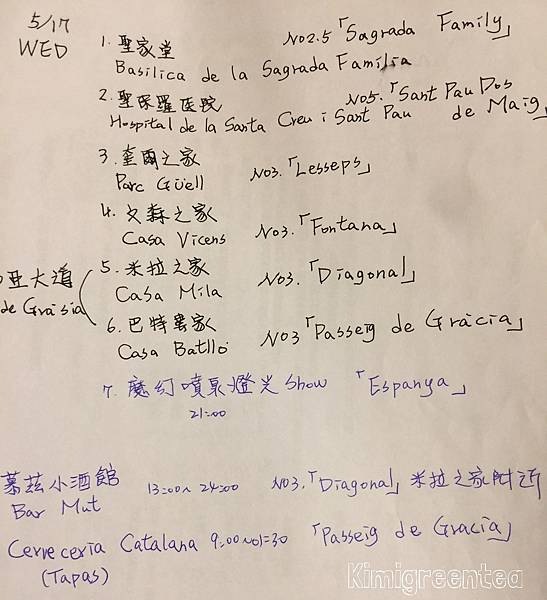 5/17
WED
1. 聖家堂 NO2.5「Sagrada Family」
Basilica de la Sagrada Família
2. 聖保羅医院 NO5.「Sant Pau Dos de Maig」
Hospital de la Santa Creu i Sant Pau
3. 奎爾之家 NO3.「Lesseps」
Parc Güell
4. 文森之家 NO3.「Fontana」
Casa Vicens
亞大道
de Gràsia
5. 米拉之家 NO3.「Diagonal」
Casa Mila
6. 巴特婁家 NO3「Passeig de Gràcia」
Casa Batlló
7. 魔幻噴泉燈光 Show 「Espanya」
21:00
慕茲小酒館 13:00~24:00 NO3.「Diagonal」米拉之家附近
Bar Mut
Cerveceria Catalana 9:00~01:30 「Passeig de Gracia」
(Tapas)
Kimigreentea